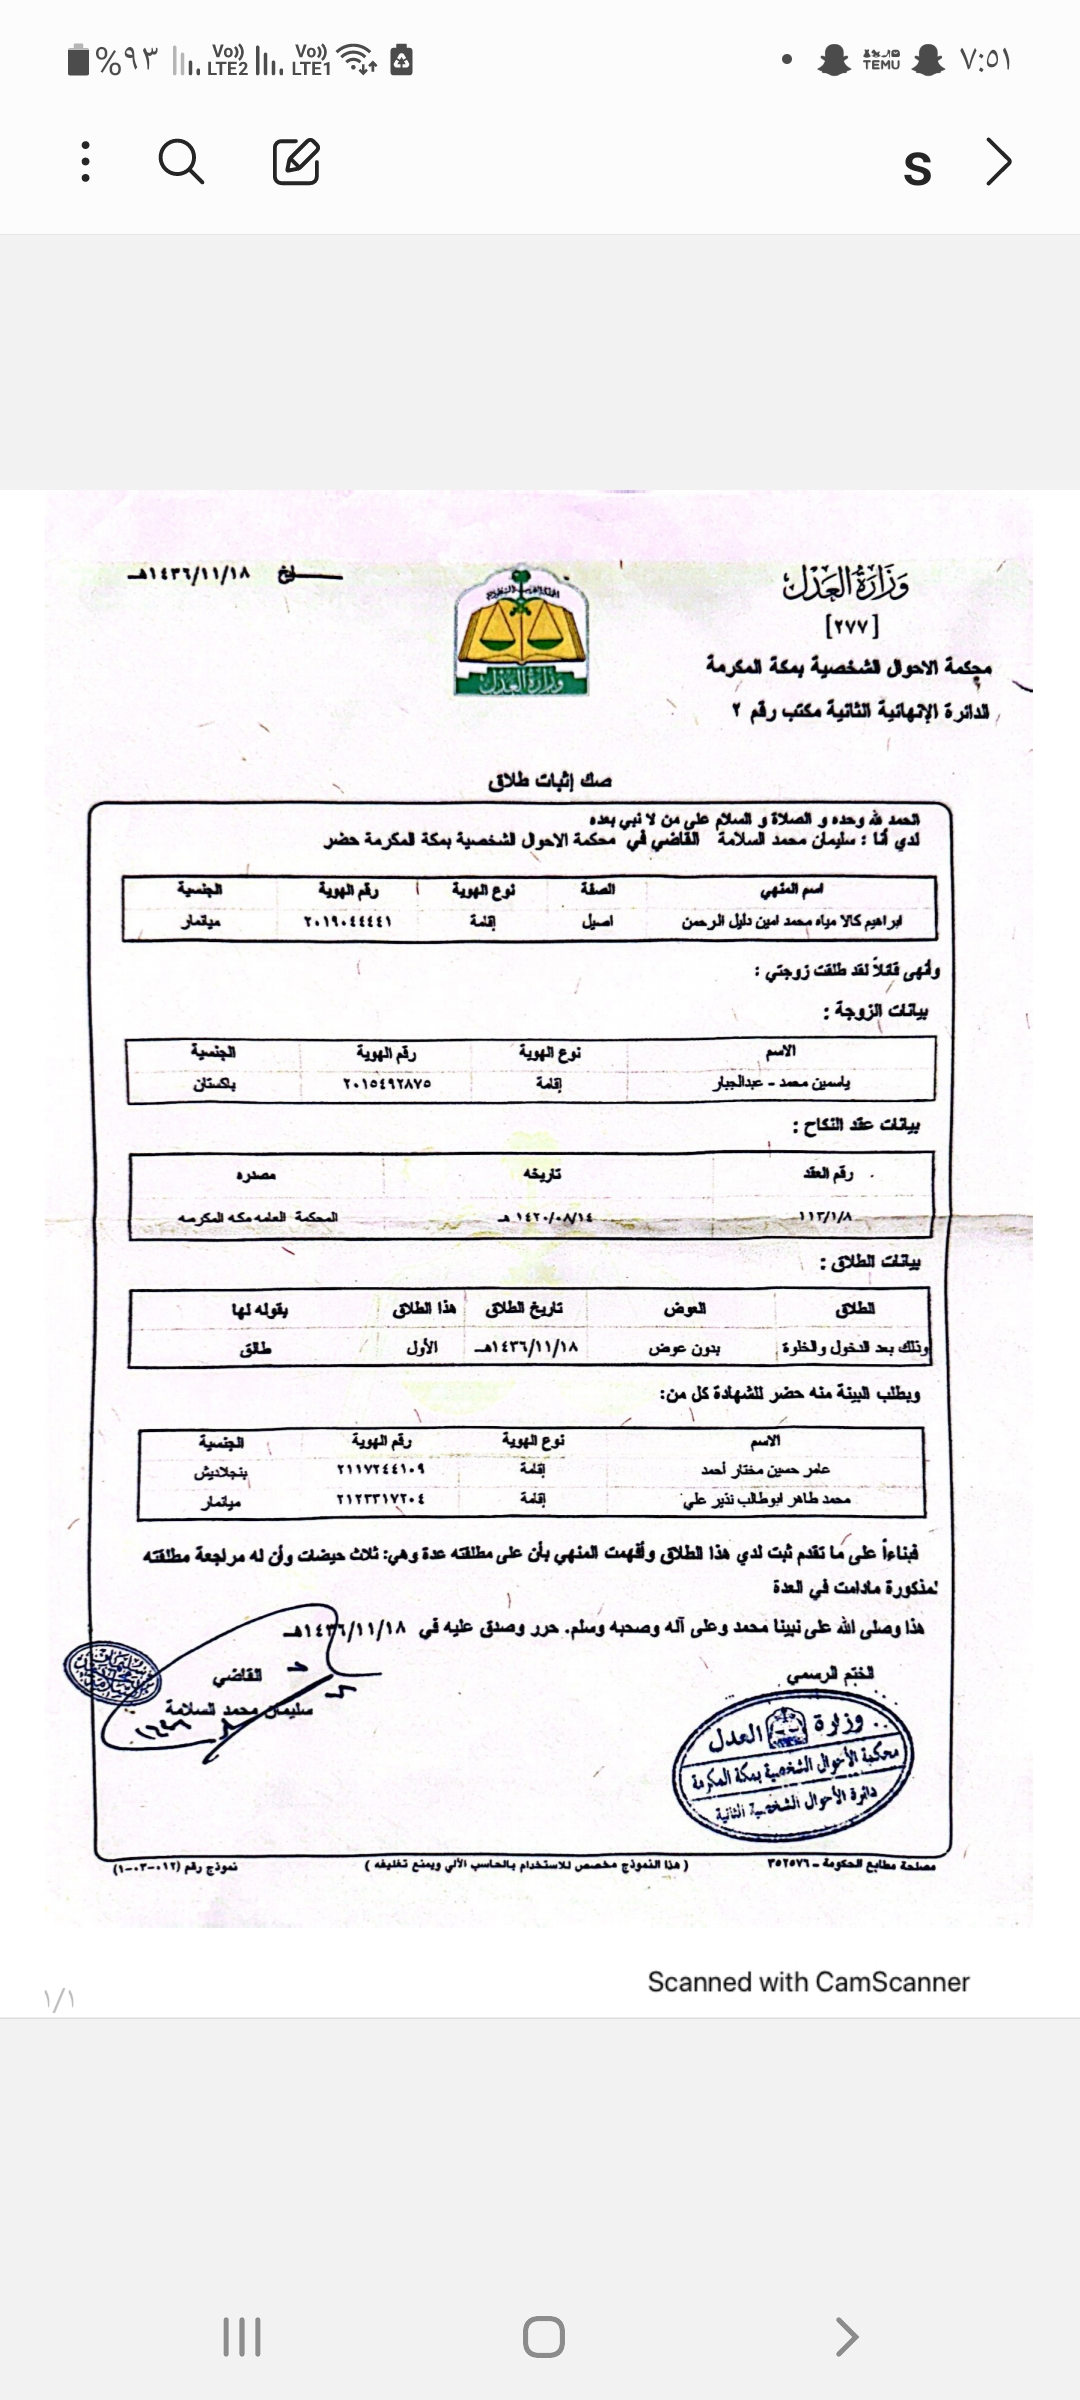 %٩٣ Vo)) LTE2 Vo)) LTE1 TEMU ٧:٥١
S
وزارة العدل
[٢٧٧]
محكمة الاحوال الشخصية بمكة المكرمة
الدائرة الإنهائية الثانية مكتب رقم ٢
وزارة العدل
تاريخ ١٤٣٦/١١/١٨هـ
صك إثبات طلاق
الحمد لله وحده و الصلاة و السلام على من لا نبي بعده
لدي أنا : سليمان محمد السلامة القاضي في محكمة الاحوال الشخصية بمكة المكرمة حضر
اسم المنهي الصفة نوع الهوية رقم الهوية الجنسية
ابراهيم كالا مياه محمد امين دليل الرحمن اصيل إقامة ٢٠١٩٠٤٤٤٤١ ميانمار
وأنهى قائلاً لقد طلقت زوجتي :
بيانات الزوجة :
الاسم نوع الهوية رقم الهوية الجنسية
ياسمين محمد - عبدالجبار إقامة ٢٠١٥٤٩٢٨٧٥ باكستان
بيانات عقد النكاح :
رقم العقد تاريخه مصدره
١١٣/١/٨ ١٤٢٠/٠٨/١٤ هـ المحكمة العامه مكه المكرمه
بيانات الطلاق :
الطلاق العوض تاريخ الطلاق هذا الطلاق بقوله لها
وذلك بعد الدخول والخلوة بدون عوض ١٤٣٦/١١/١٨هـ الأول طالق
وبطلب البينة منه حضر للشهادة كل من:
الاسم نوع الهوية رقم الهوية الجنسية
عامر حسين مختار أحمد إقامة ٢١١٧٢٤٤١٠٩ بنجلاديش
محمد طاهر ابوطالب نذير علي إقامة ٢١٢٣٣١٧٢٠٤ ميانمار
فبناءاً على ما تقدم ثبت لدي هذا الطلاق وأفهمت المنهي بأن على مطلقته عدة وهي: ثلاث حيضات وأن له مراجعة مطلقته
المذكورة مادامت في العدة
هذا وصلى الله على نبينا محمد وعلى آله وصحبه وسلم. حرر وصدق عليه في ١٤٣٦/١١/١٨هـ
الختم الرسمي القاضي
سليمان محمد السلامة
وزارة العدل
محكمة الأحوال الشخصية بمكة المكرمة
دائرة الأحوال الشخصية الثانية
مصلحة مطابع الحكومة - ٣٥٢٥٧٦ ( هذا النموذج مخصص للاستخدام بالحاسب الآلي ويمنع تغليفه ) نموذج رقم (١٢-٠٣-٠١)
Scanned with CamScanner
١/١